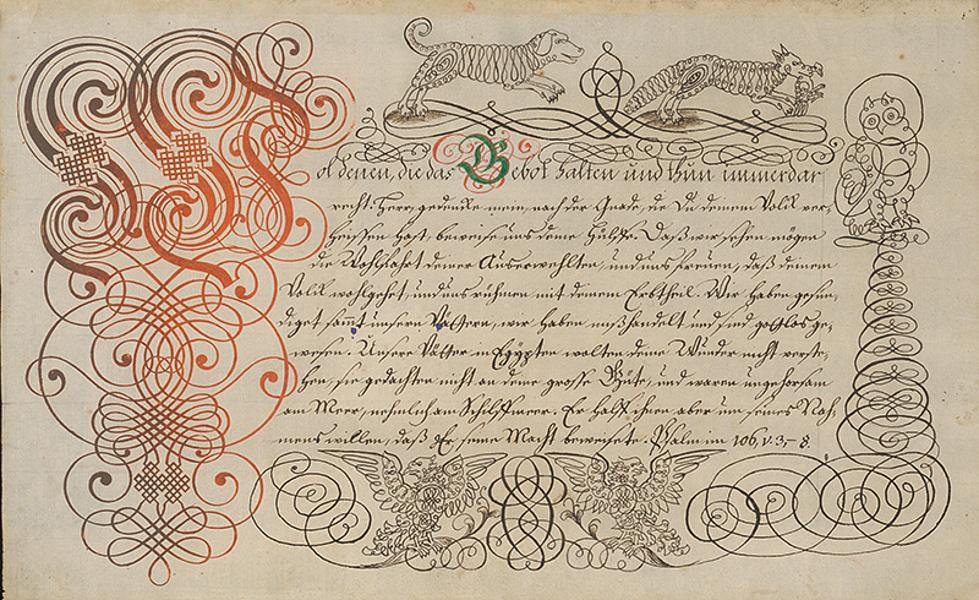 Wol denen, die das Gebot halten und thun immerdar
recht. Herr, gedencke mein, nach der Gnade, die Du deinem Volck ver-
heissen hast, beweise uns deine Hülffe. Daß wir sehen mögen
die Wohlfahrt deiner Auserwehlten, und uns freuen, daß deinem
Volck wohlgehet, und uns rühmen mit deinem Erbtheil. Wir haben gesün-
diget sammt unsern Vättern, wir haben mißhandelt und sind gottlos ge-
wesen. Unsere Vätter in Egypten wolten deine Wunder nicht verste-
hen, sie gedachten nicht an deine grosse Güte, und waren ungehorsam
am Meer, nehmlich am Schilffmeer. Er halff ihnen aber um seines Nah-
mens willen, daß Er seine Macht beweisete. Psalm im 106, v. 3,- 8.